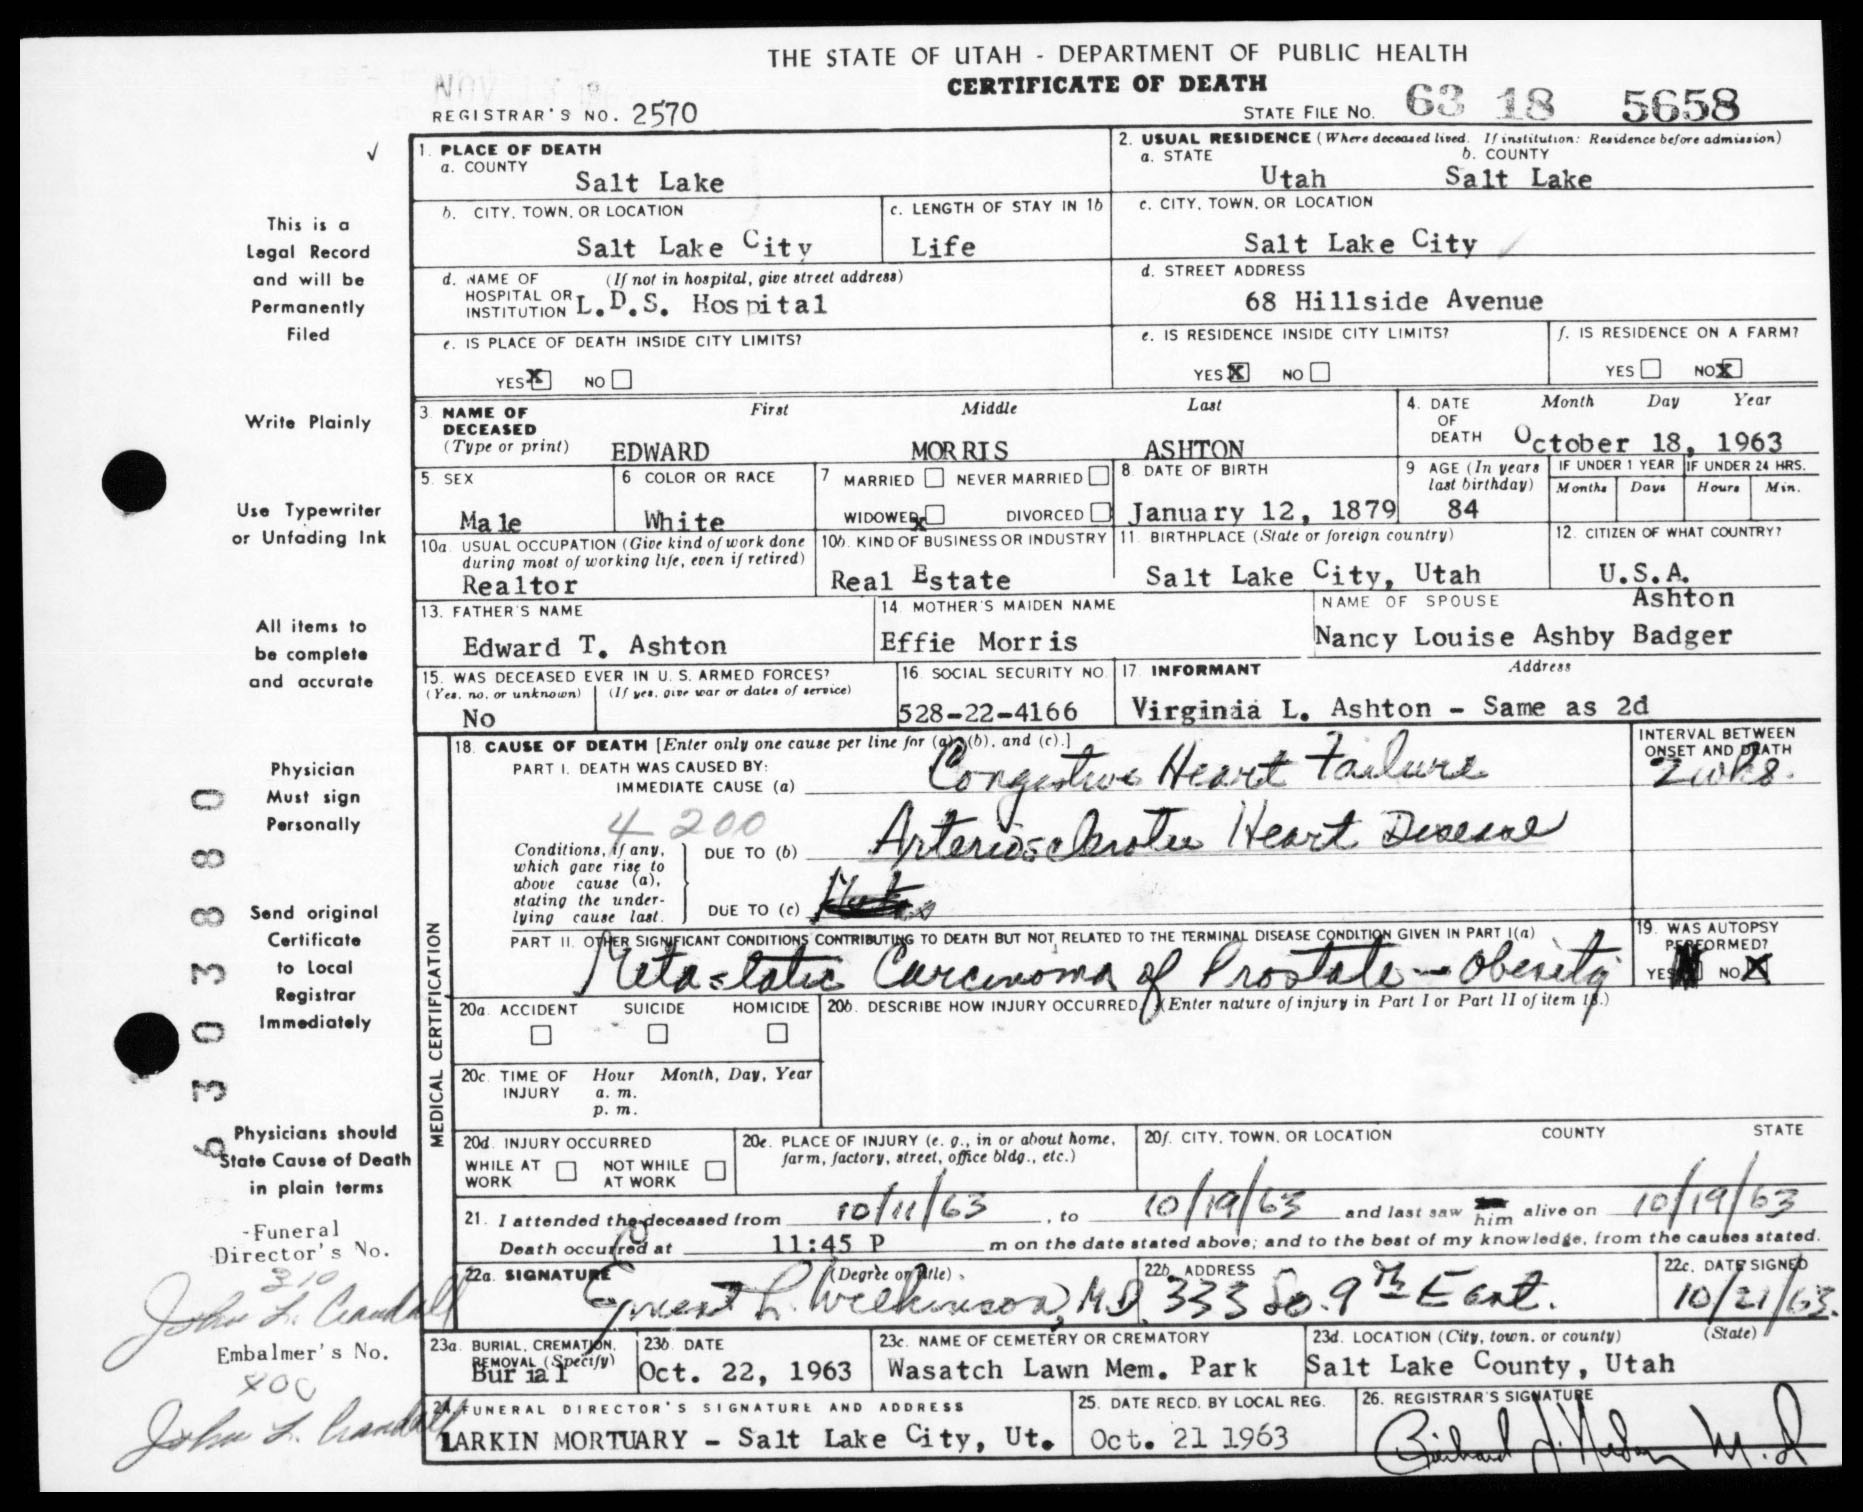 THE STATE OF UTAH - DEPARTMENT OF PUBLIC HEALTH
CERTIFICATE OF DEATH
REGISTRAR'S NO. 2570
STATE FILE NO. 63 18 5658
This is a
Legal Record
and will be
Permanently
Filed
Write Plainly
Use Typewriter
or Unfading Ink
All items to
be complete
and accurate
Physician
Must sign
Personally
Send original
Certificate
to Local
Registrar
Immediately
Physicians should
State Cause of Death
in plain terms
6303880
-Funeral
Director's No.
310
John L. Crandall
Embalmer's No.
400
John L. Crandall
1. PLACE OF DEATH
a. COUNTY
Salt Lake
2. USUAL RESIDENCE (Where deceased lived. If institution: Residence before admission)
a. STATE b. COUNTY
Utah Salt Lake
b. CITY, TOWN, OR LOCATION
Salt Lake City
c. LENGTH OF STAY IN 1b
Life
c. CITY, TOWN, OR LOCATION
Salt Lake City
d. NAME OF (If not in hospital, give street address)
HOSPITAL OR
INSTITUTION L.D.S. Hospital
d. STREET ADDRESS
68 Hillside Avenue
e. IS PLACE OF DEATH INSIDE CITY LIMITS?
YES X NO
e. IS RESIDENCE INSIDE CITY LIMITS?
YES X NO
f. IS RESIDENCE ON A FARM?
YES NO X
3. NAME OF DECEASED
(Type or print)
First Middle Last
EDWARD MORRIS ASHTON
4. DATE OF DEATH
Month Day Year
October 18, 1963
5. SEX
Male
6 COLOR OR RACE
White
7 MARRIED NEVER MARRIED
WIDOWED X DIVORCED
8 DATE OF BIRTH
January 12, 1879
9 AGE (In years
last birthday)
84
IF UNDER 1 YEAR IF UNDER 24 HRS.
Months Days Hours Min.
10a. USUAL OCCUPATION (Give kind of work done
during most of working life, even if retired)
Realtor
10b. KIND OF BUSINESS OR INDUSTRY
Real Estate
11. BIRTHPLACE (State or foreign country)
Salt Lake City, Utah
12. CITIZEN OF WHAT COUNTRY?
U.S.A.
13. FATHER'S NAME
Edward T. Ashton
14. MOTHER'S MAIDEN NAME
Effie Morris
NAME OF SPOUSE Ashton
Nancy Louise Ashby Badger
15. WAS DECEASED EVER IN U. S. ARMED FORCES?
(Yes, no, or unknown) (If yes, give war or dates of service)
No
16. SOCIAL SECURITY NO.
528-22-4166
17. INFORMANT Address
Virginia L. Ashton - Same as 2d
MEDICAL CERTIFICATION
18. CAUSE OF DEATH [Enter only one cause per line for (a), (b), and (c).]
PART I. DEATH WAS CAUSED BY:
IMMEDIATE CAUSE (a) Congestive Heart Failure
INTERVAL BETWEEN
ONSET AND DEATH
2 wks.
4 200
Conditions, if any,
which gave rise to
above cause (a),
stating the under-
lying cause last.
DUE TO (b) Arteriosclerotic Heart Disease
DUE TO (c)
PART II. OTHER SIGNIFICANT CONDITIONS CONTRIBUTING TO DEATH BUT NOT RELATED TO THE TERMINAL DISEASE CONDITION GIVEN IN PART I(a)
Metastatic Carcinoma of Prostate - Obesity
19. WAS AUTOPSY
PERFORMED?
YES NO X
20a. ACCIDENT SUICIDE HOMICIDE
20b. DESCRIBE HOW INJURY OCCURRED (Enter nature of injury in Part I or Part II of item 18.)
20c. TIME OF INJURY
Hour Month, Day, Year
a. m.
p. m.
20d. INJURY OCCURRED
WHILE AT WORK NOT WHILE AT WORK
20e. PLACE OF INJURY (e. g., in or about home,
farm, factory, street, office bldg., etc.)
20f. CITY, TOWN, OR LOCATION COUNTY STATE
21. I attended the deceased from 10/11/63, to 10/19/63 and last saw him alive on 10/19/63
Death occurred at 11:45 P m on the date stated above; and to the best of my knowledge, from the causes stated.
22a. SIGNATURE (Degree or title)
Ernest L. Wilkinson, M.D.
22b. ADDRESS
333 So. 9th East.
22c. DATE SIGNED
10/21/63.
23a. BURIAL, CREMATION,
REMOVAL (Specify)
Burial
23b. DATE
Oct. 22, 1963
23c. NAME OF CEMETERY OR CREMATORY
Wasatch Lawn Mem. Park
23d. LOCATION (City, town, or county) (State)
Salt Lake County, Utah
24. FUNERAL DIRECTOR'S SIGNATURE AND ADDRESS
LARKIN MORTUARY - Salt Lake City, Ut.
25. DATE RECD. BY LOCAL REG.
Oct. 21 1963
26. REGISTRAR'S SIGNATURE
Richard
M.D